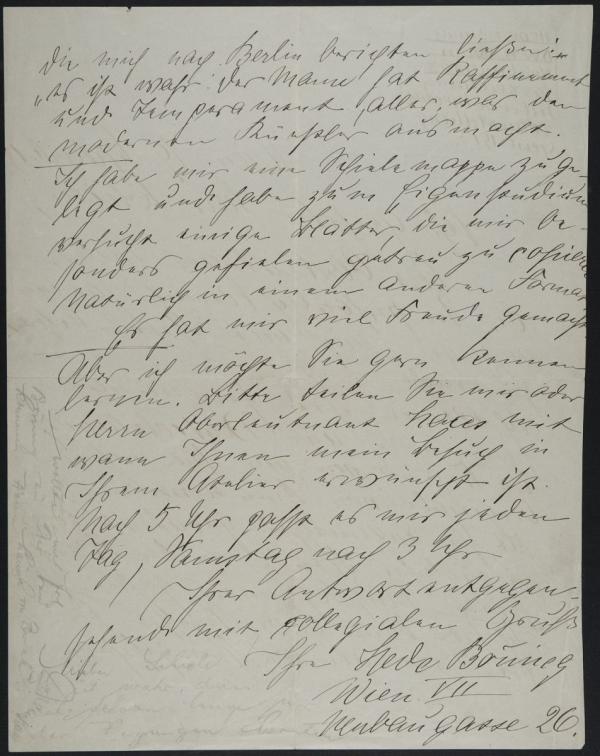 die mich nach Berlin berichten ließen:
"es ist wahr: der Mann hat Raffinement
und Temperament, alles, was den
modernen Künstler ausmacht.
Ich habe mir eine Schiele mappe zuge-
legt und habe zum Eigenstudium
versucht einige Blätter, die mir be-
sonders gefielen getreu zu copieren
Natürlich in einem anderen Format
Es hat mir viel Freude gemacht
Aber ich möchte Sie gern kennen
lernen. Bitte teilen Sie mir oder
Herrn Oberleutnant mit
wann Ihnen mein Besuch in
Ihrem Atelier erwünscht ist.
Nach 5 Uhr passt es mir jeden
Tag, Samstag nach 3 Uhr
Ihrer Antwort entgegen-
sehend mit collegialen Gruß
Ihre Hede
Wien VII
Neubaugasse 26.